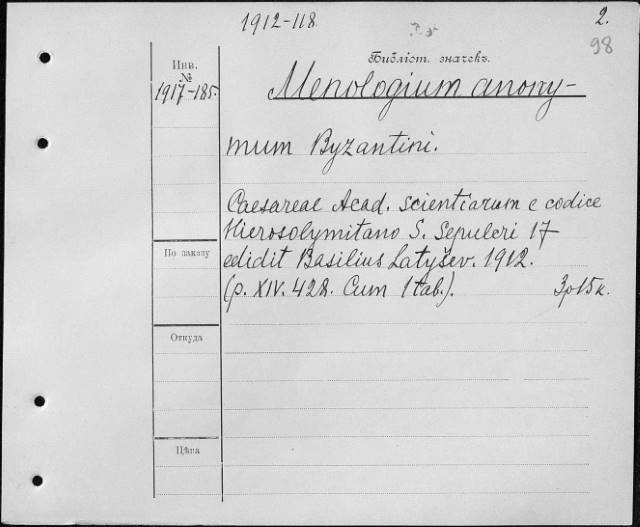 1912-118
2.
98
Библіот. значекъ.
Инв.
№
1917-185.
Menologium anony-
mum Byzantini.
Caesareae Acad. scientiarum e codice
Hierosolymitano S. Sepulcri 17
edidit Basilius Latyšev. 1912.
(p. XIV. 428. Cum 1 tab.). 3р15к.
По заказу
Откуда
Цѣна